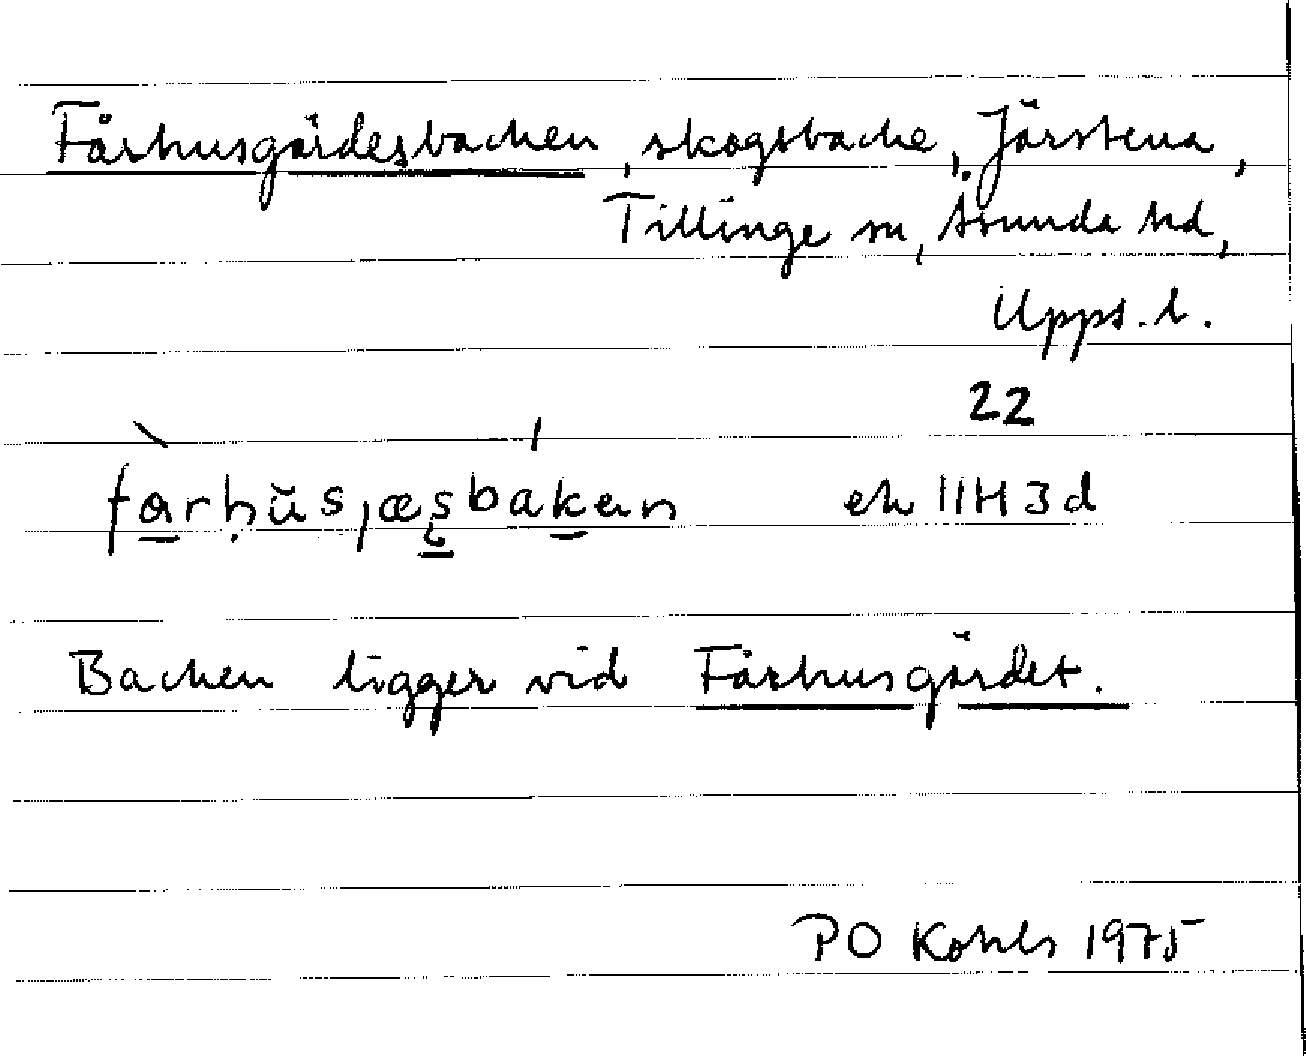 Fårhusgärdesbacken, skogsbacke, Järstena,
Tillinge sn, Åsunda hd,
Upps. l.
22
fårhŭsjæsbakan ek 11H 3d
Backen ligger vid Fårhusgärdet.
PO Kohls 1975